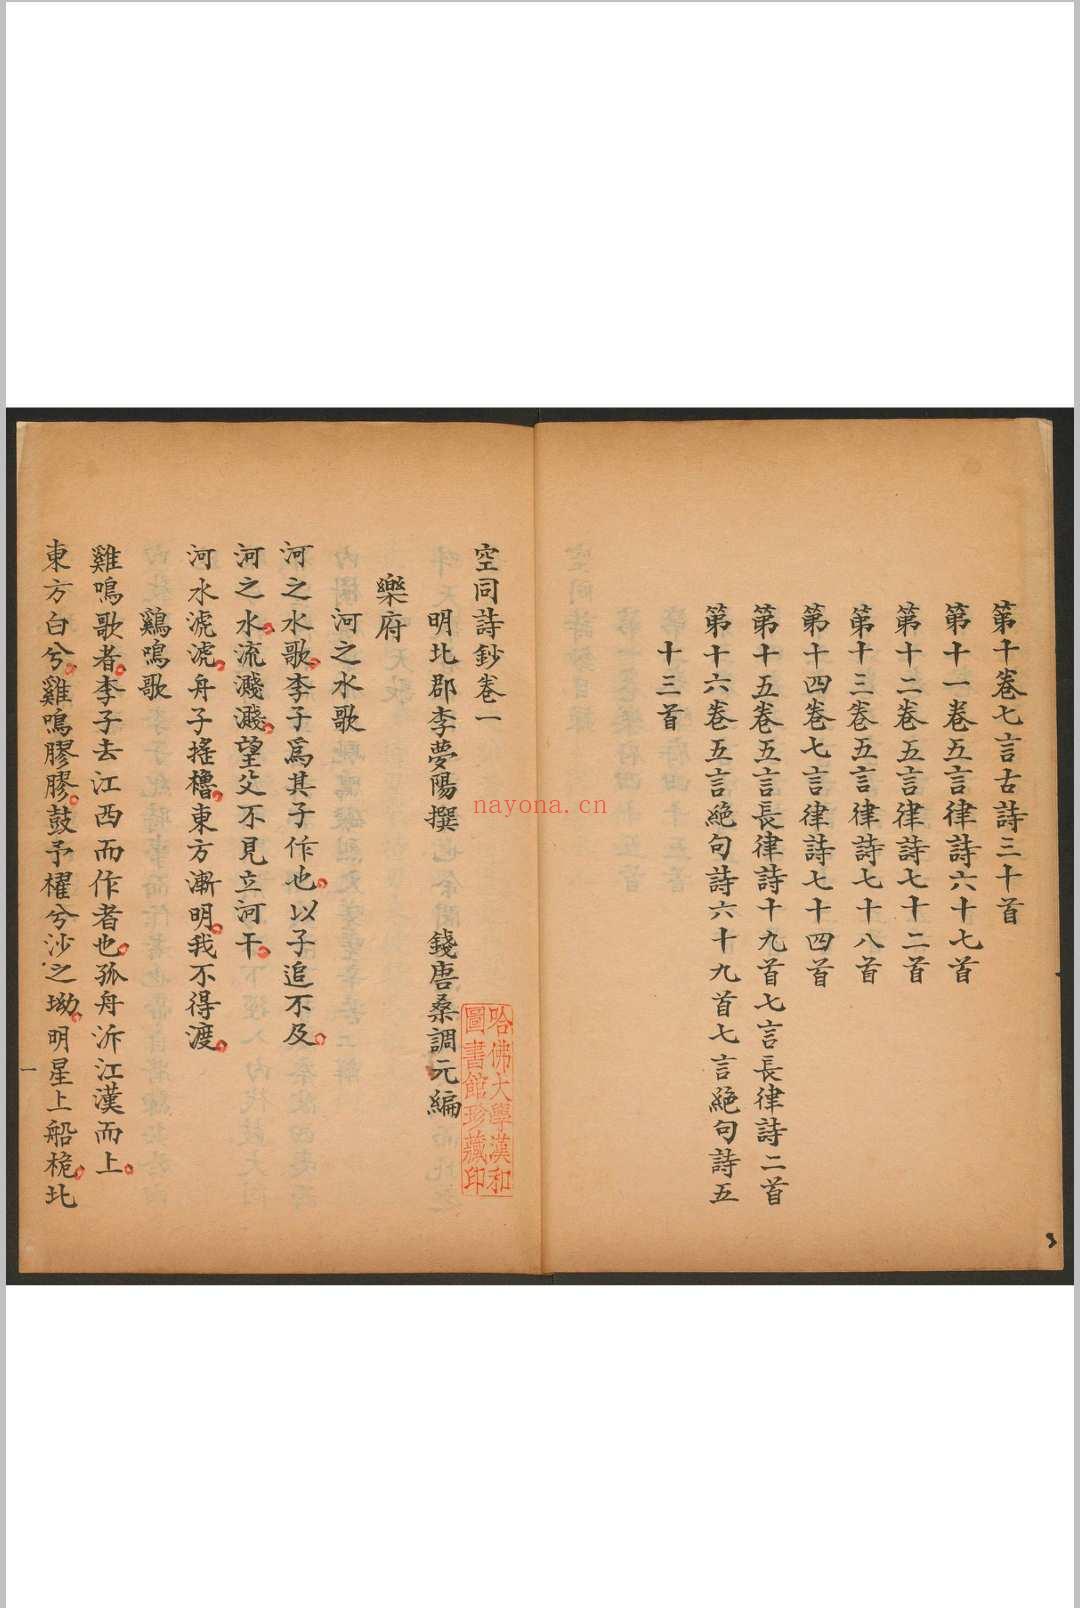 第十卷七言古詩三十首
第十一卷五言律詩六十七首
第十二卷五言律詩七十二首
第十三卷五言律詩七十八首
第十四卷七言律詩七十四首
第十五卷五言長律詩十九首七言長律詩二首
第十六卷五言絕句詩六十九首七言絕句詩五
十三首
空同詩鈔卷一
明北郡李夢陽撰 錢唐桑調元編
哈佛大學漢和
圖書館珍藏印
樂府
河之水歌
河之水歌李子爲其子作也以子追不及
河之水流濺濺望父不見立河干
河水淲淲舟子搖櫓東方漸明我不得渡
鷄鳴歌
雞鳴歌者李子去江西而作者也孤舟泝江漢而上
東方白兮雞鳴膠膠鼓予櫂兮沙之坳明星上船桅北
一
nayona.cn